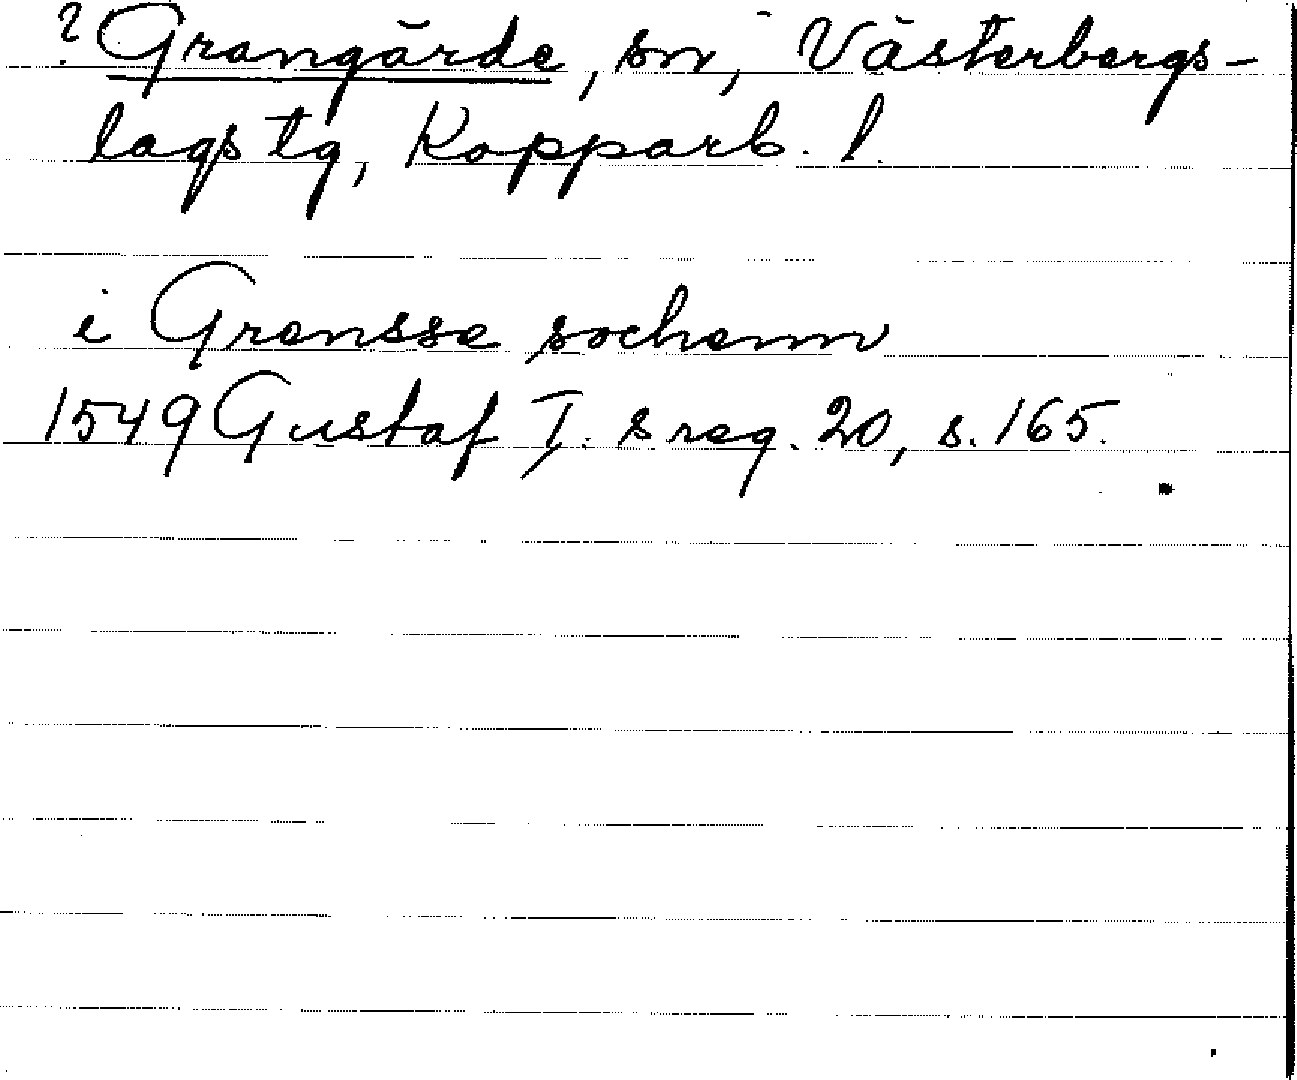 ? Grangärde, sn, Västerbergs-
lags tg, Kopparb. l.
i Gransse sochenn
1549 Gustaf I. s reg. 20, s. 165.